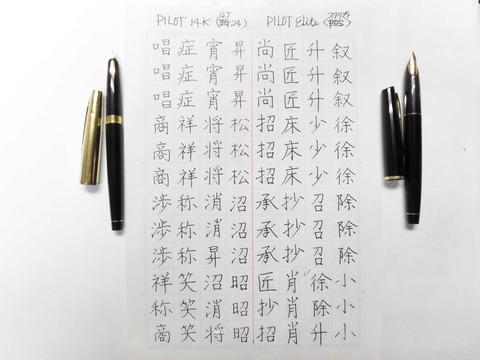 PILOT 14K
PILOT Elite
叙叙叙徐徐徐除除除小小小
升升升少少少召召召徐除升
匠匠匠床床床抄抄抄肖肖肖
尚尚尚招招招承承承匠抄招
昇昇昇松松松沼沼沼昭昭昭
宵宵宵将将将消消昇沼消将
症症症祥祥祥称称称笑笑笑
唱唱唱商商商渉渉渉祥称商